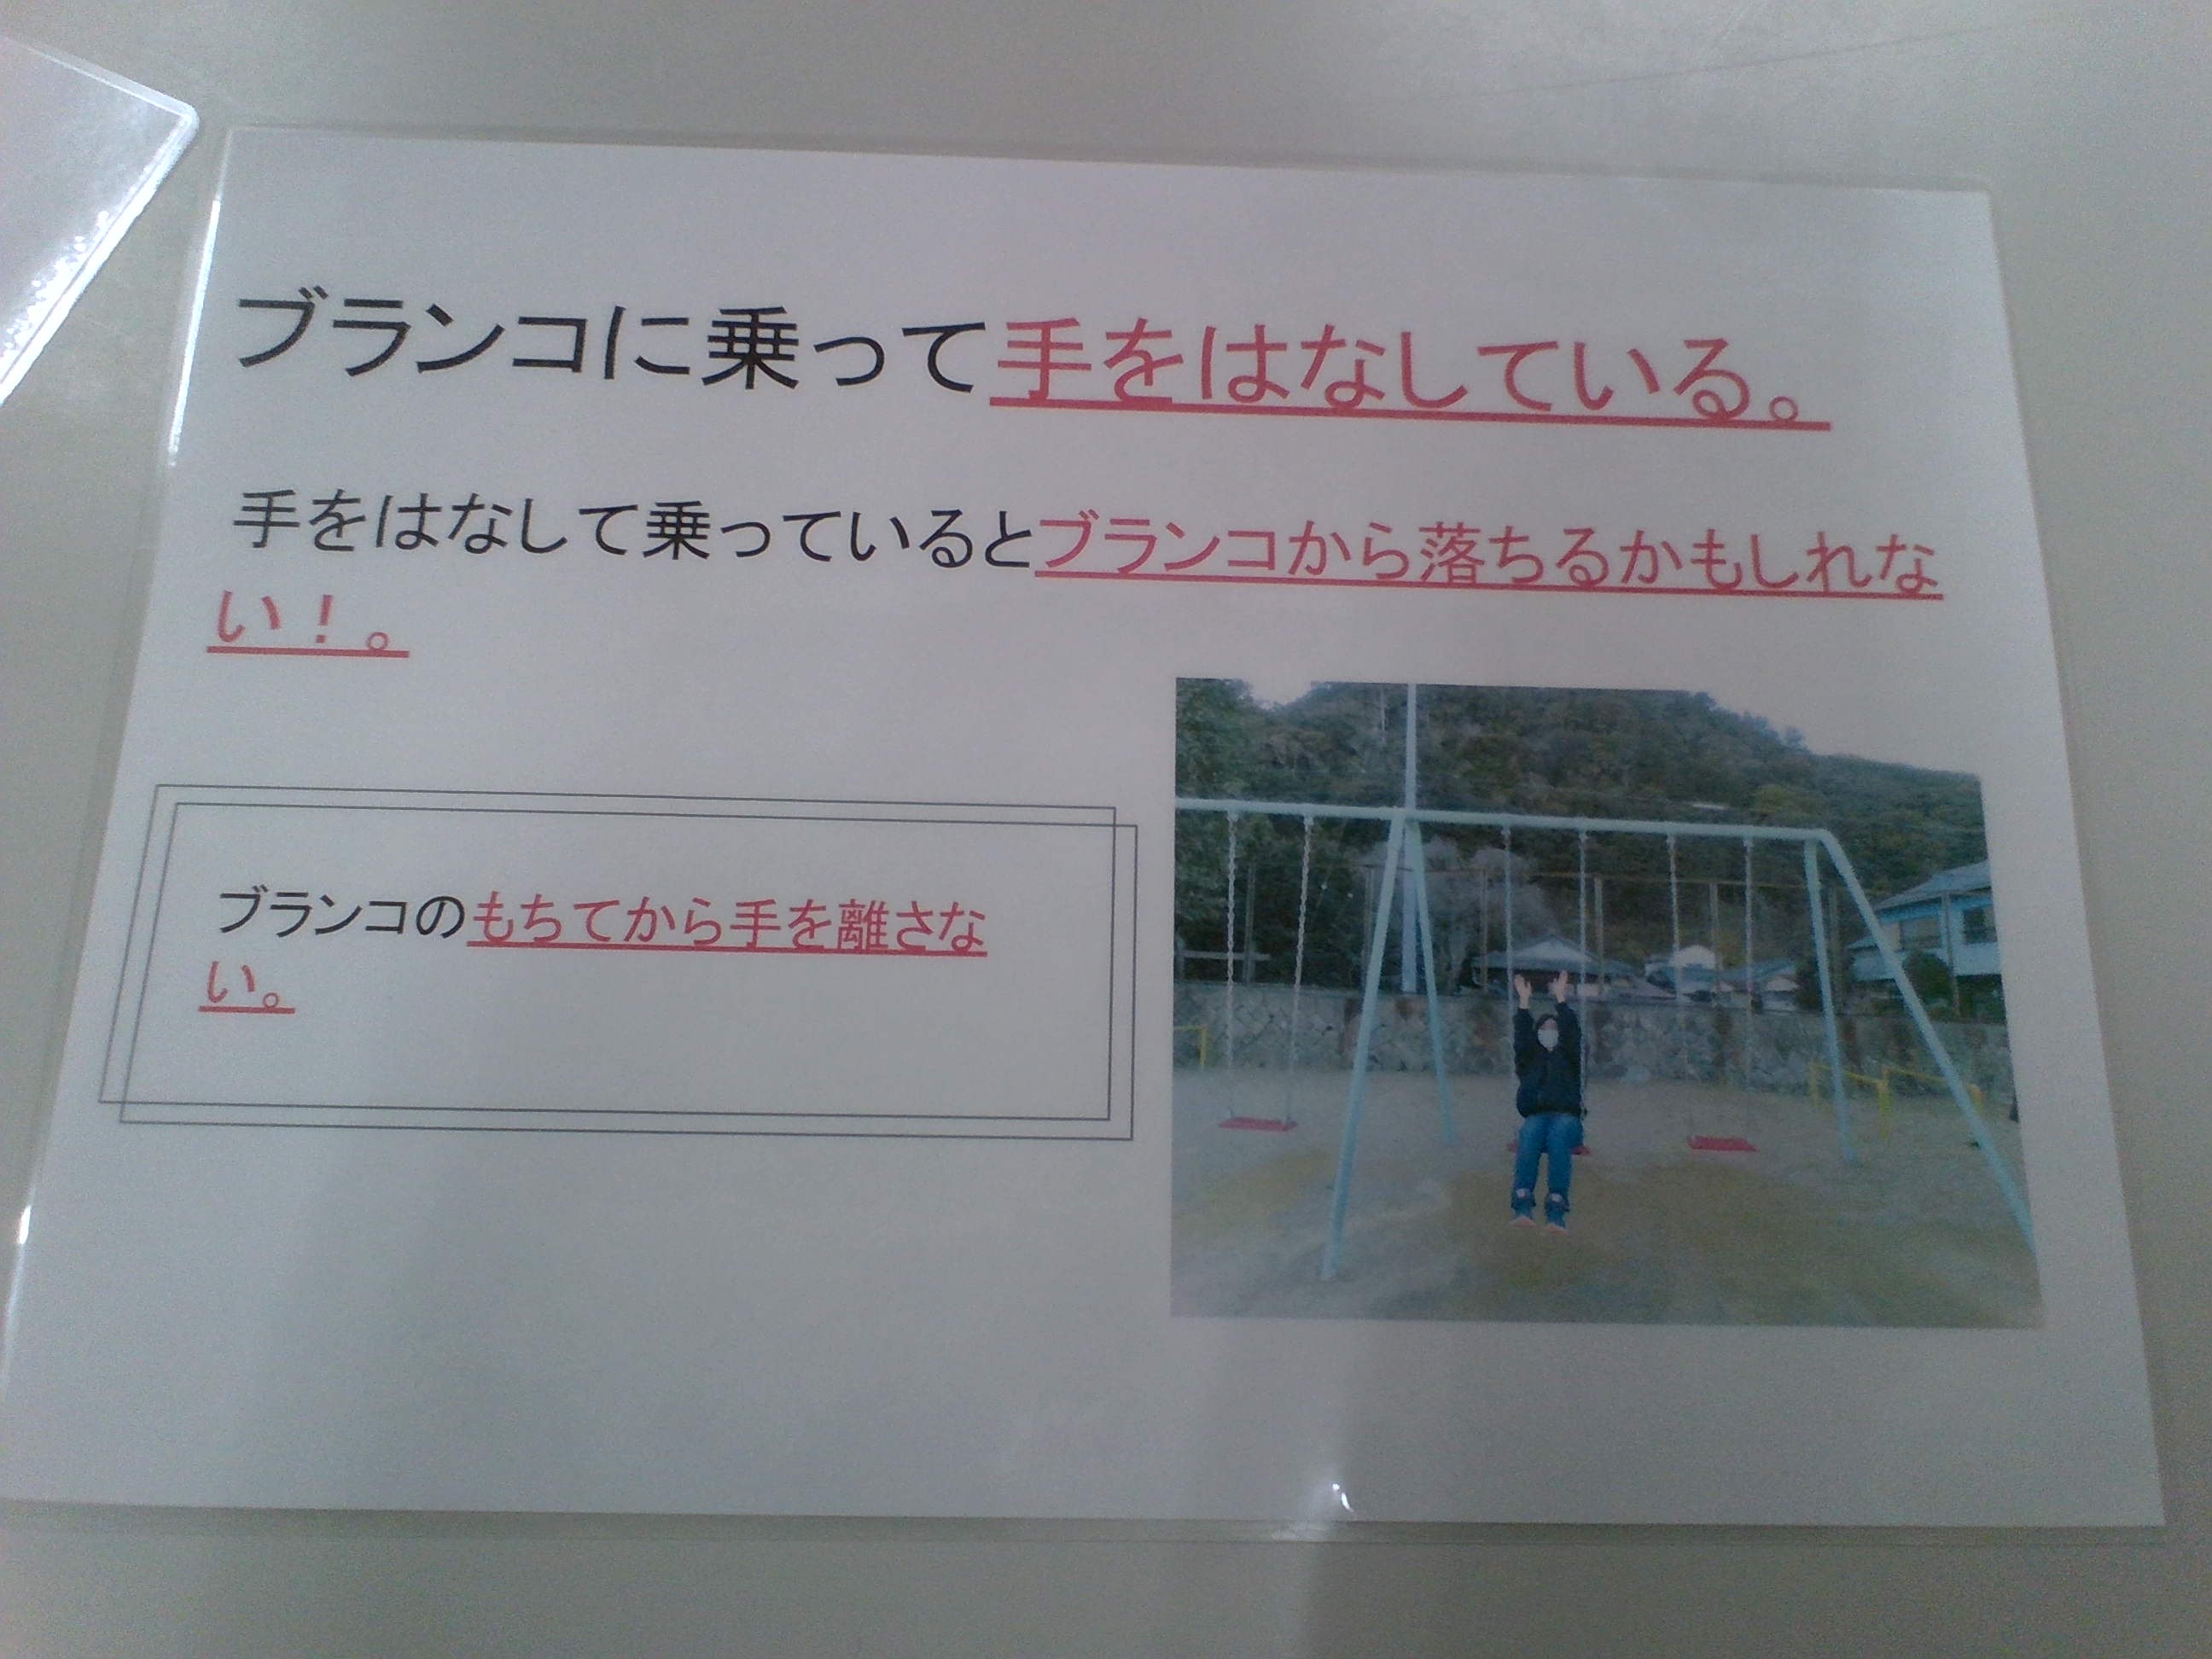 ブランコに乗って手をはなしている。
手をはなして乗っているとブランコから落ちるかもしれな
い！。
ブランコのもちてから手を離さな
い。